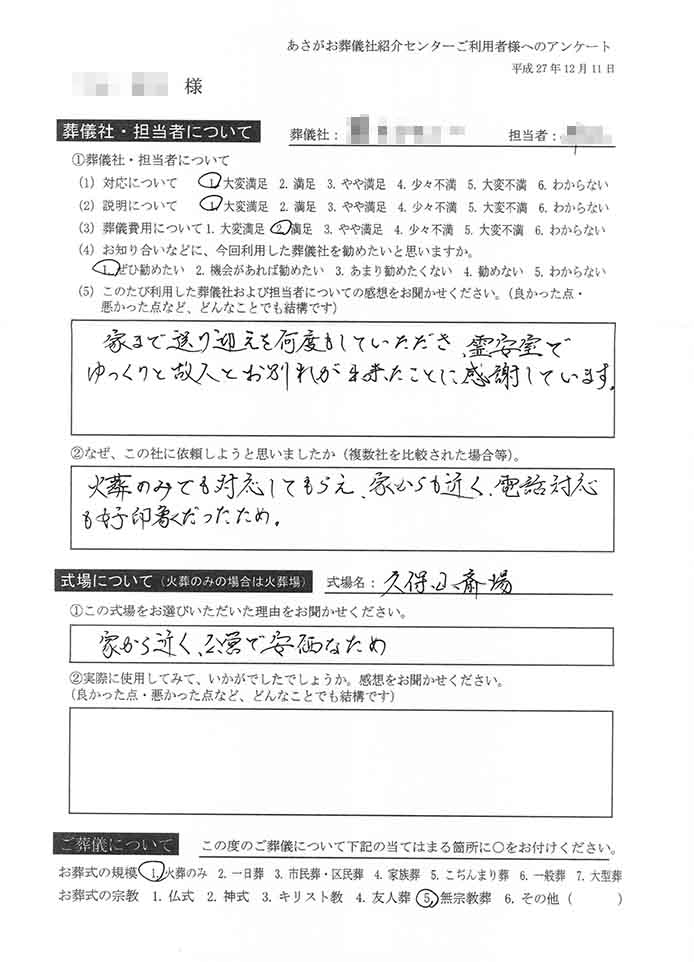 あさがお葬儀社紹介センターご利用者様へのアンケート
平成27年12月11日
様
葬儀社・担当者について 葬儀社: 担当者:
①葬儀社・担当者について
(1) 対応について 1. 大変満足 2. 満足 3. やや満足 4. 少々不満 5. 大変不満 6. わからない
(2) 説明について 1. 大変満足 2. 満足 3. やや満足 4. 少々不満 5. 大変不満 6. わからない
(3) 葬儀費用について 1. 大変満足 2. 満足 3. やや満足 4. 少々不満 5. 大変不満 6. わからない
(4) お知り合いなどに、今回利用した葬儀社を勧めたいと思いますか。
1. ぜひ勧めたい 2. 機会があれば勧めたい 3. あまり勧めたくない 4. 勧めない 5. わからない
(5) このたび利用した葬儀社および担当者についての感想をお聞かせください。(良かった点・
悪かった点など、どんなことでも結構です)
家まで送り迎えを何度もしていただき、霊安室で
ゆっくりと故人とお別れが出来たことに感謝しています。
②なぜ、この社に依頼しようと思いましたか(複数社を比較された場合等)。
火葬のみでも対応してもらえ、家からも近く、電話対応
も好印象だったため。
式場について(火葬のみの場合は火葬場) 式場名: 久保山斎場
①この式場をお選びいただいた理由をお聞かせください。
家から近く、公営で安価なため
②実際に使用してみて、いかがでしたでしょうか。感想をお聞かせください。
(良かった点・悪かった点など、どんなことでも結構です)
ご葬儀について この度のご葬儀について下記の当てはまる箇所に○をお付けください。
お葬式の規模 1. 火葬のみ 2. 一日葬 3. 市民葬・区民葬 4. 家族葬 5. こぢんまり葬 6. 一般葬 7. 大型葬
お葬式の宗教 1. 仏式 2. 神式 3. キリスト教 4. 友人葬 5. 無宗教葬 6. その他( )